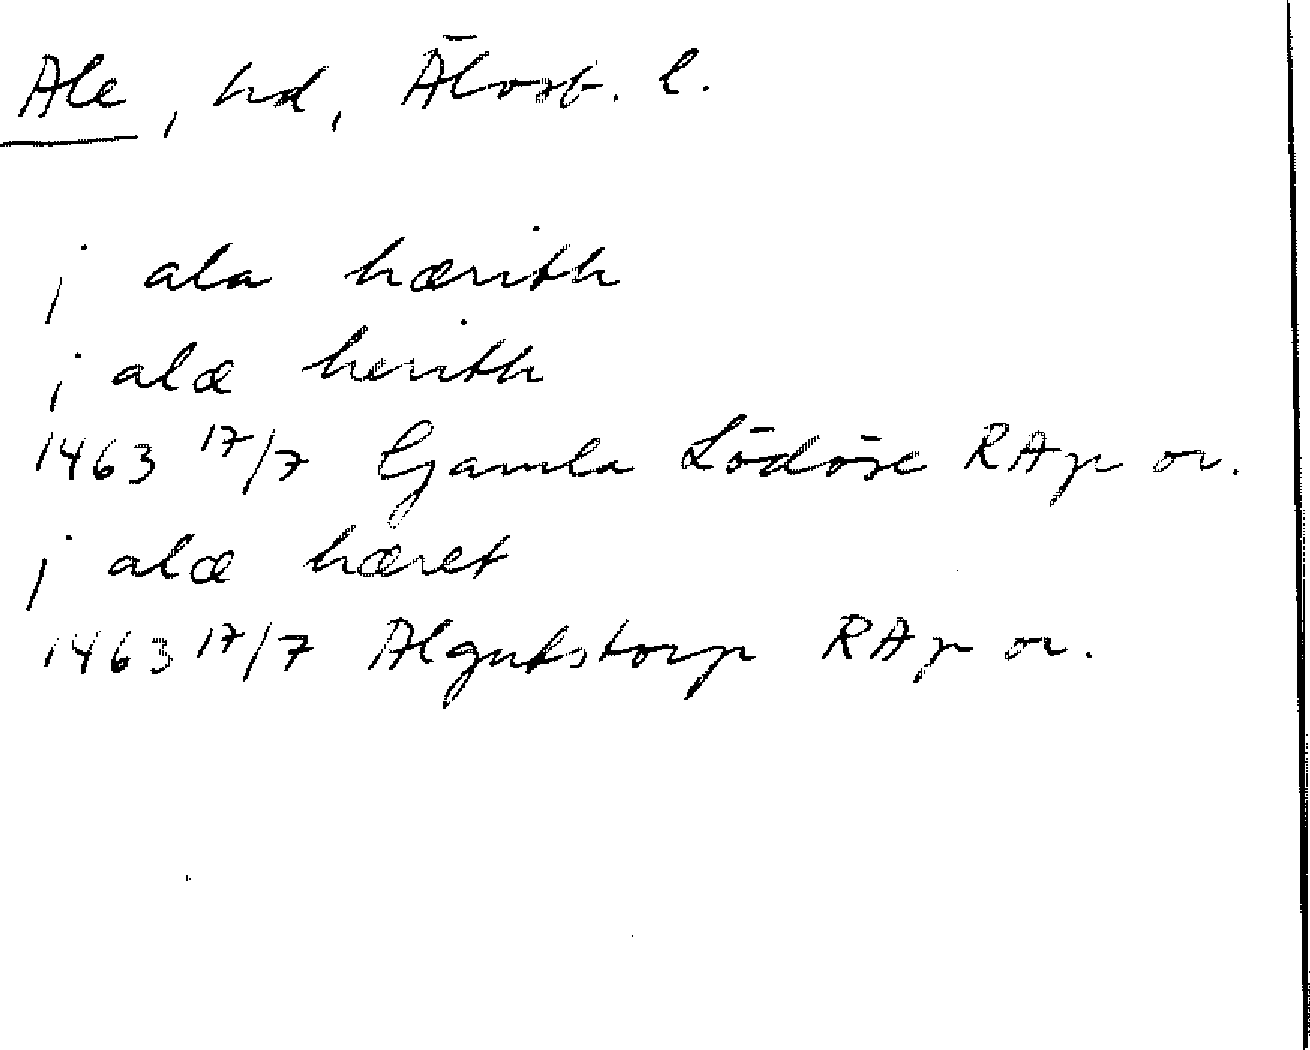 Ale, hd, Älvsb. l.
j ala hærith
j alæ herith
1463 17/7 Gamla Lödöse RAp or.
j alæ hæret
1463 17/7 Algutstorp RAp or.